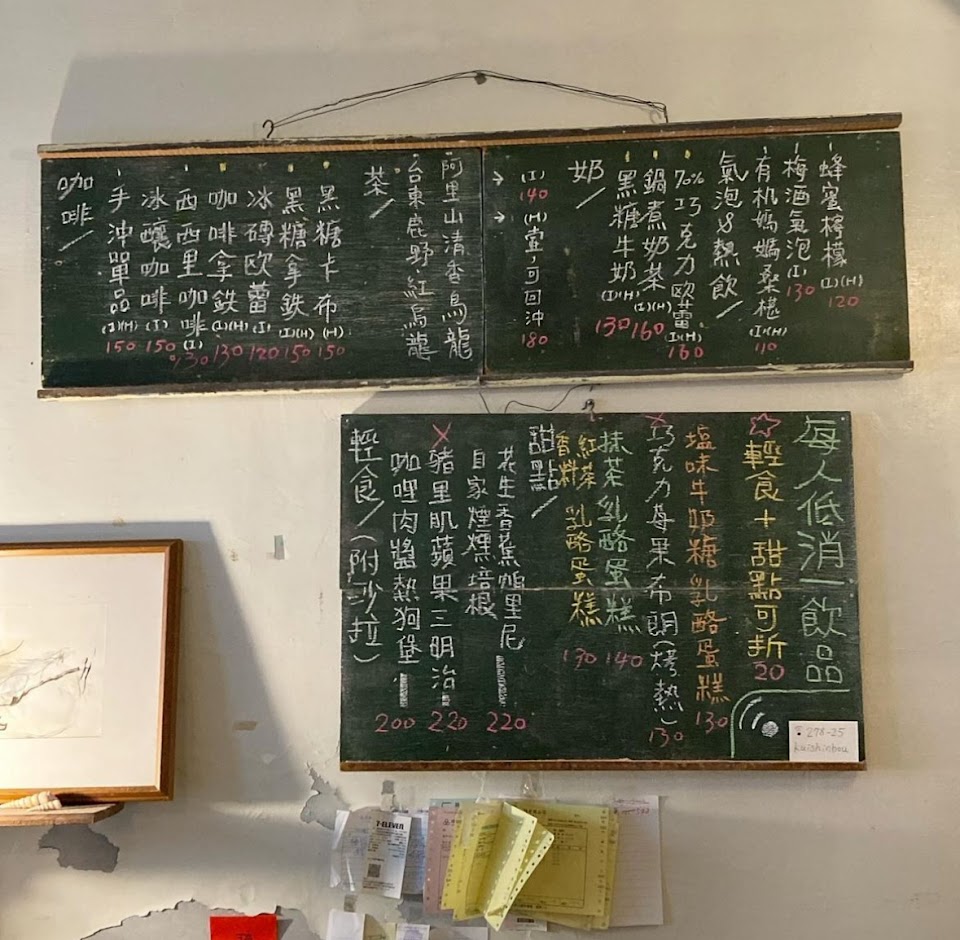 咖啡
手沖單品 (I)(H) 150
冰釀咖啡 (I) 150
西西里咖啡 (I) 130
咖啡拿鉄 (I)(H) 130
冰磚欧蕾 (I) 120
黑糖拿鉄 (I)(H) 150
黑糖卡布 (H) 150
茶
台東鹿野紅烏龍
阿里山清香烏龍
→ (I) 140
→ (H) 壹,可回沖 180
奶
黑糖牛奶 (I)(H) 130
鍋煮奶茶 (I)(H) 160
70% 巧克力欧蕾 (I)(H) 160
氣泡&熱飲
有机媽媽桑椹 (I)(H) 110
梅酒氣泡 (I) 130
蜂蜜檸檬 (I)(H) 120
每人低消一飲品
☆輕食+甜點可折20
塩味牛奶糖乳酪蛋糕 130
X 巧克力莓果布朗(烤熱) 130
抹茶乳酪蛋糕 140
紅茶香料乳酪蛋糕 130
甜點
花生香蕉帕里尼 220
自家煙燻培根
X 豬里肌蘋果三明治 220
咖哩肉醬熱狗堡 200
輕食(附沙拉)
278-25
kuishinbou
7-ELEVEN